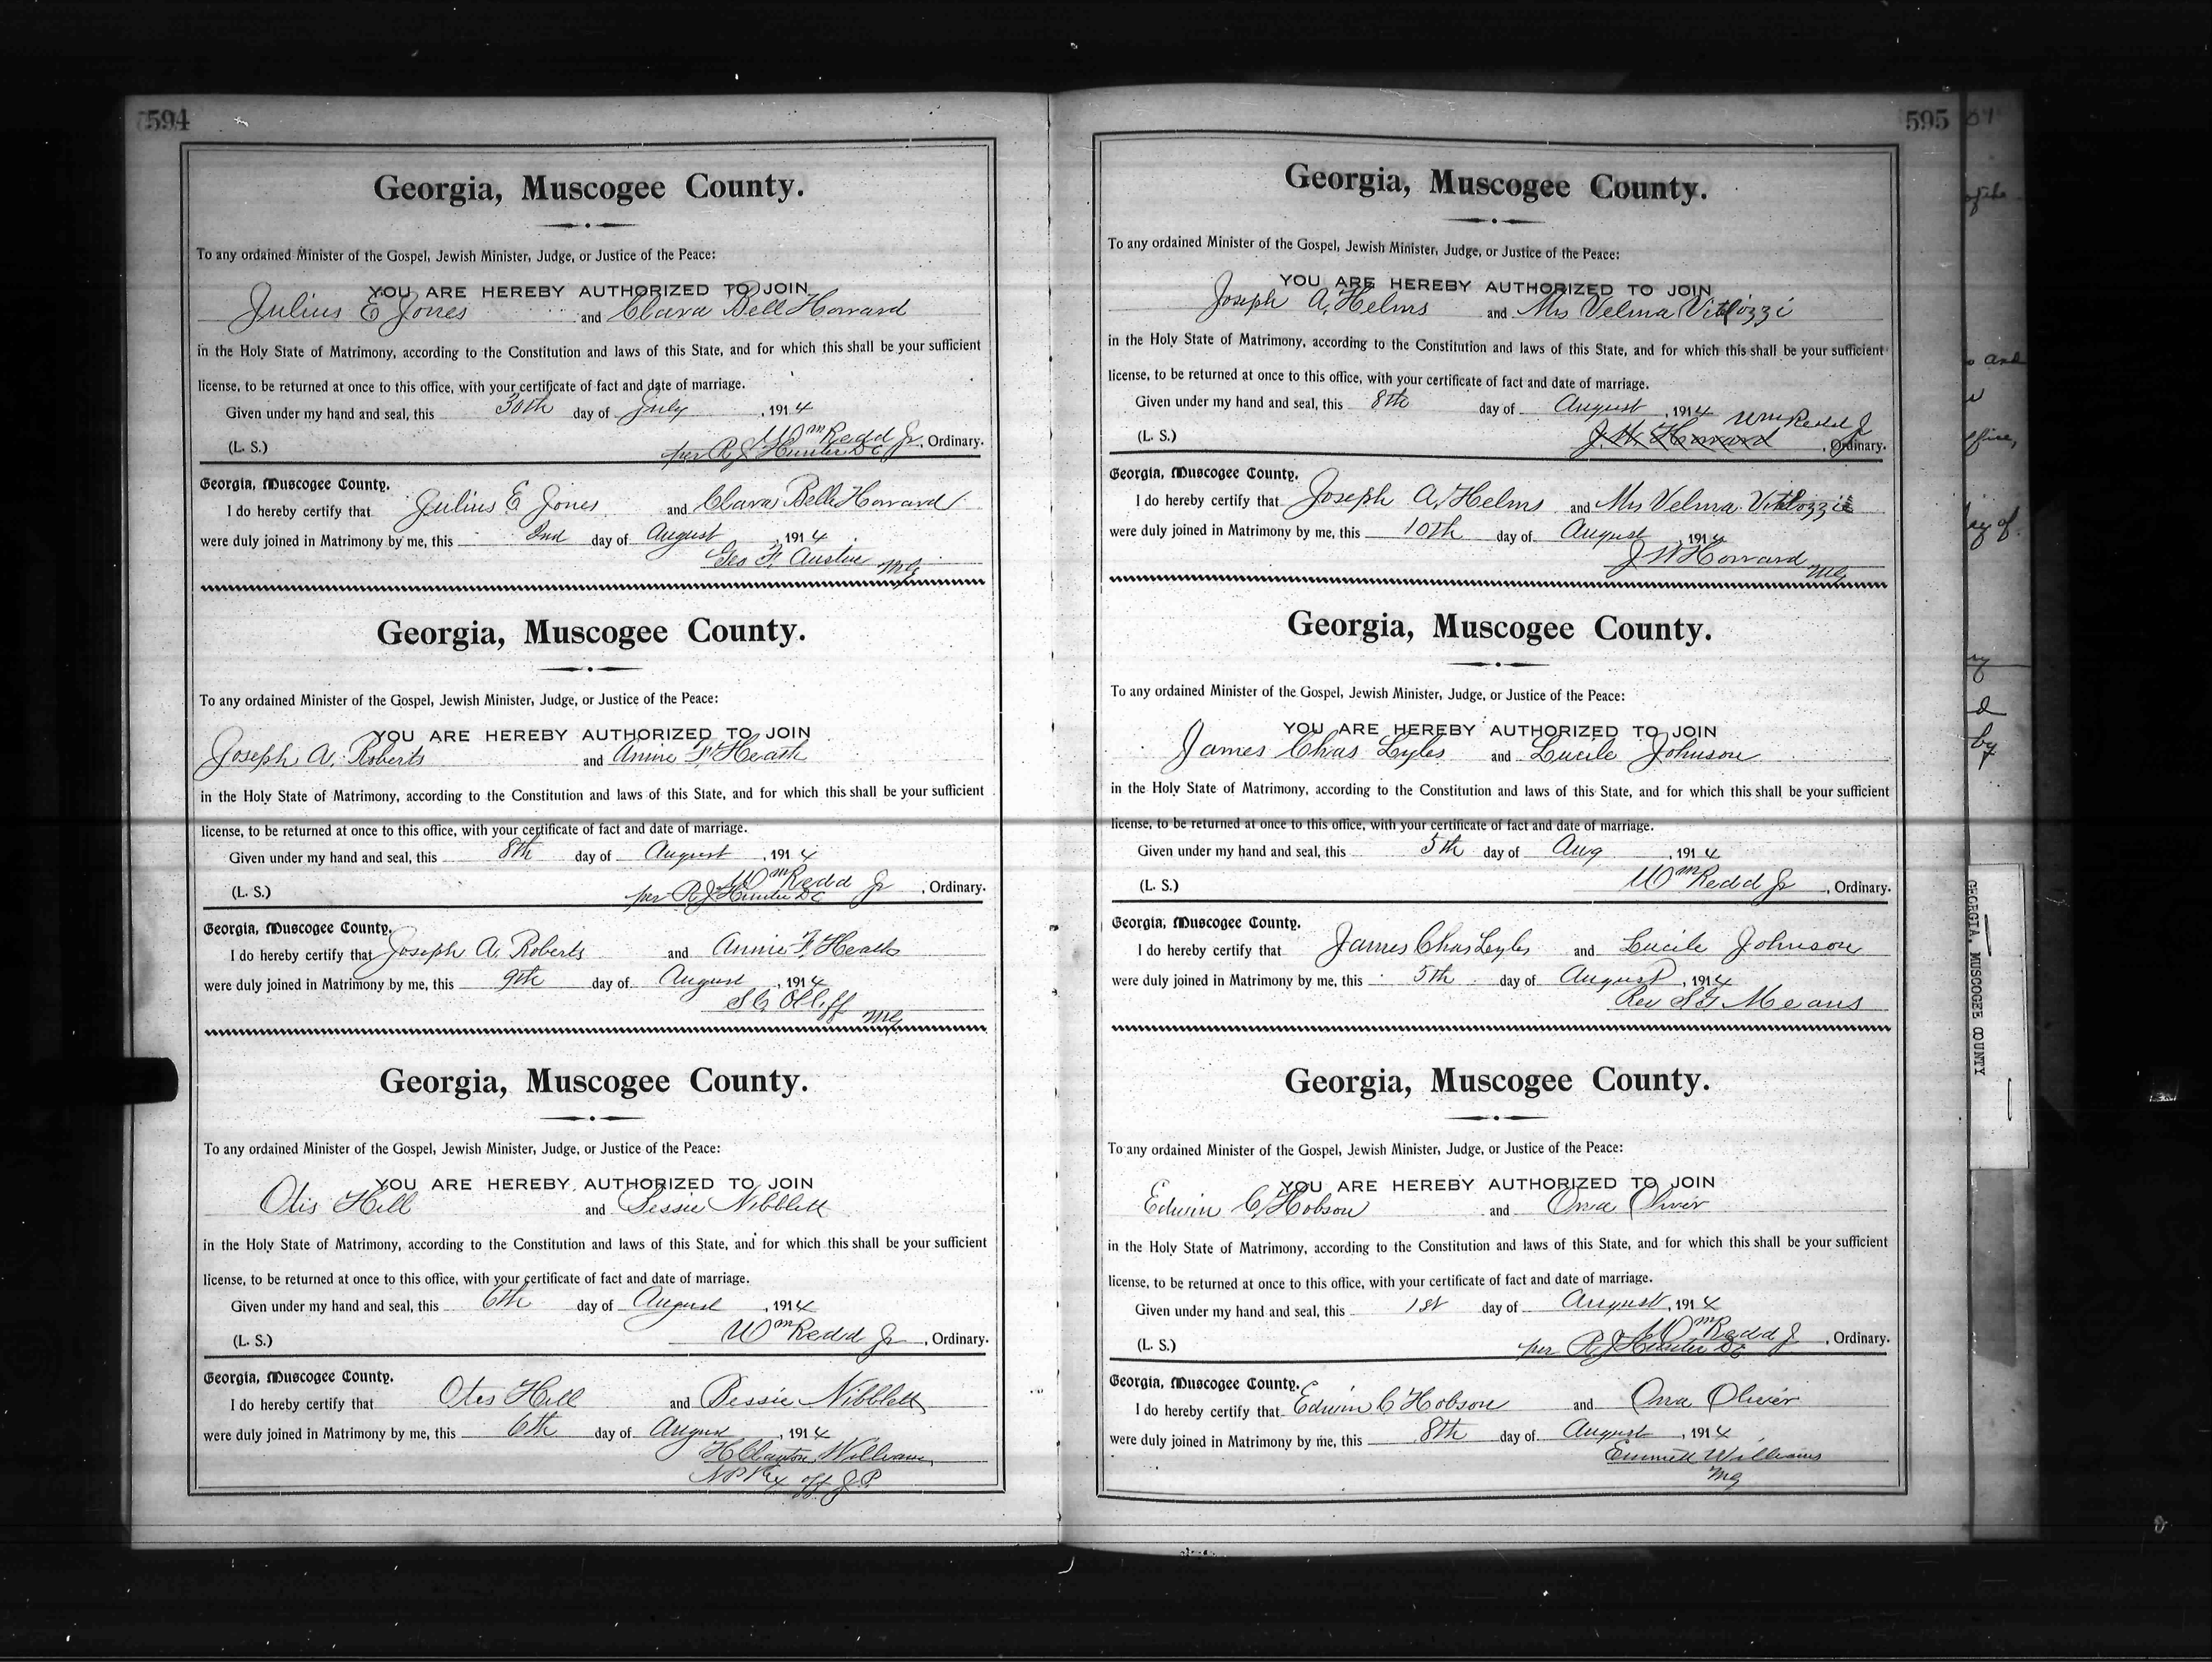 594
Georgia, Muscogee County.
To any ordained Minister of the Gospel, Jewish Minister, Judge, or Justice of the Peace:
YOU ARE HEREBY AUTHORIZED TO JOIN
Julius E Jones and Clara Bell Howard
in the Holy State of Matrimony, according to the Constitution and laws of this State, and for which this shall be your sufficient
license, to be returned at once to this office, with your certificate of fact and date of marriage.
Given under my hand and seal, this 30th day of July, 1914
(L. S.) Wm Redd Jr, Ordinary.
per R J Hunter DC
Georgia, Muscogee County.
I do hereby certify that Julius E Jones and Clara Bell Howard
were duly joined in Matrimony by me, this 2nd day of August, 1914
Geo F. Austin MG
Georgia, Muscogee County.
To any ordained Minister of the Gospel, Jewish Minister, Judge, or Justice of the Peace:
YOU ARE HEREBY AUTHORIZED TO JOIN
Joseph A. Roberts and Annie F. Heath
in the Holy State of Matrimony, according to the Constitution and laws of this State, and for which this shall be your sufficient
license, to be returned at once to this office, with your certificate of fact and date of marriage.
Given under my hand and seal, this 8th day of August, 1914
(L. S.) Wm Redd Jr, Ordinary.
per R J Hunter DC
Georgia, Muscogee County.
I do hereby certify that Joseph A. Roberts and Annie F. Heath
were duly joined in Matrimony by me, this 9th day of August, 1914
S C Olliff MG
Georgia, Muscogee County.
To any ordained Minister of the Gospel, Jewish Minister, Judge, or Justice of the Peace:
YOU ARE HEREBY AUTHORIZED TO JOIN
Otis Hill and Bessie Nibblett
in the Holy State of Matrimony, according to the Constitution and laws of this State, and for which this shall be your sufficient
license, to be returned at once to this office, with your certificate of fact and date of marriage.
Given under my hand and seal, this 6th day of August, 1914
(L. S.) Wm Redd Jr, Ordinary.
Georgia, Muscogee County.
I do hereby certify that Otis Hill and Bessie Nibblett
were duly joined in Matrimony by me, this 6th day of August, 1914
H Clanton Williams
N P & Ex off J P.
595
Georgia, Muscogee County.
To any ordained Minister of the Gospel, Jewish Minister, Judge, or Justice of the Peace:
YOU ARE HEREBY AUTHORIZED TO JOIN
Joseph A. Helms and Mrs Velma Vitlozzi
in the Holy State of Matrimony, according to the Constitution and laws of this State, and for which this shall be your sufficient
license, to be returned at once to this office, with your certificate of fact and date of marriage.
Given under my hand and seal, this 8th day of August, 1914 Wm Redd Jr
(L. S.) J. W. Howard, Ordinary.
Georgia, Muscogee County.
I do hereby certify that Joseph A. Helms and Mrs Velma Vitlozzi
were duly joined in Matrimony by me, this 10th day of August, 1914
J W Howard MG
Georgia, Muscogee County.
To any ordained Minister of the Gospel, Jewish Minister, Judge, or Justice of the Peace:
YOU ARE HEREBY AUTHORIZED TO JOIN
James Chas Lyles and Lucile Johnson
in the Holy State of Matrimony, according to the Constitution and laws of this State, and for which this shall be your sufficient
license, to be returned at once to this office, with your certificate of fact and date of marriage.
Given under my hand and seal, this 5th day of Aug, 1914
(L. S.) Wm Redd Jr, Ordinary.
Georgia, Muscogee County.
I do hereby certify that James Chas Lyles and Lucile Johnson
were duly joined in Matrimony by me, this 5th day of August, 1914
Rev Means
Georgia, Muscogee County.
To any ordained Minister of the Gospel, Jewish Minister, Judge, or Justice of the Peace:
YOU ARE HEREBY AUTHORIZED TO JOIN
Edwin C. Hobson and Oma Oliver
in the Holy State of Matrimony, according to the Constitution and laws of this State, and for which this shall be your sufficient
license, to be returned at once to this office, with your certificate of fact and date of marriage.
Given under my hand and seal, this 1st day of August, 1914
(L. S.) Wm Redd Jr, Ordinary.
per R J Hunter DC
Georgia, Muscogee County.
I do hereby certify that Edwin C Hobson and Oma Oliver
were duly joined in Matrimony by me, this 8th day of August, 1914
Emmett Williams
MG
and
day of
by
GEORGIA, MUSCOGEE COUNTY